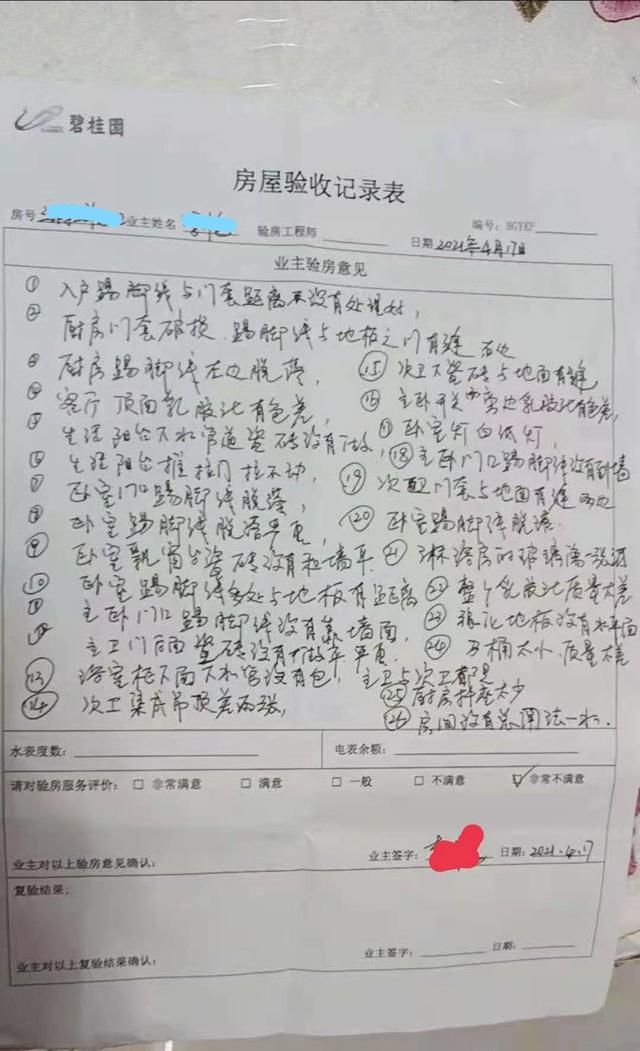 碧桂园
房屋验收记录表
房号 业主姓名 验房工程师 编号: BGYKF
日期 2021年4月17日
业主验房意见
① 入户踢脚线与门套距离 没有处理好,
② 厨房门套破损.踢脚线与地板之门有缝 右边
③ 厨房踢脚线左边脱落,
④ 客厅顶面乳胶漆有色差,
⑤ 生活阳台下水管道瓷砖没有做,
⑥ 生活阳台推拉门拉不动,
⑦ 卧室门口踢脚线脱落,
⑧ 卧室踢脚线脱落
⑨ 卧室飘窗台瓷砖没有和墙平.
⑩ 卧室踢脚线多处与地板有距离
⑪ 主卧门口踢脚线没有靠墙面,
⑫ 主卫门 面瓷砖没有做平
⑬ 浴室柜下面下水管没有包, 主卫与次卫都是
⑭ 次卫集成吊顶差两张,
⑮ 次卫 瓷砖与地面有缝
⑯ 主卧开关 旁边乳胶漆有色差,
⑰ 卧室灯白低灯,
⑱ 主卧门口踢脚线没有到墙
⑲ 次卧门套与地面有缝 两边
⑳ 卧室踢脚线脱落.
㉑ 淋浴房的玻璃
㉒ 整个乳胶漆质量太差
㉓ 地板没有水平面
㉔ 马桶太小.质量太差
㉕ 厨房插座太少
㉖ 房间没有
水表度数: 电表余额:
请对验房服务评价: □ 非常满意 □ 满意 □ 一般 □ 不满意 ☑ 非常不满意
业主对以上验房意见确认: 业主签字: 日期: 2021.4.17
复验结果:
业主对以上复验结果确认: 业主签字: 日期: